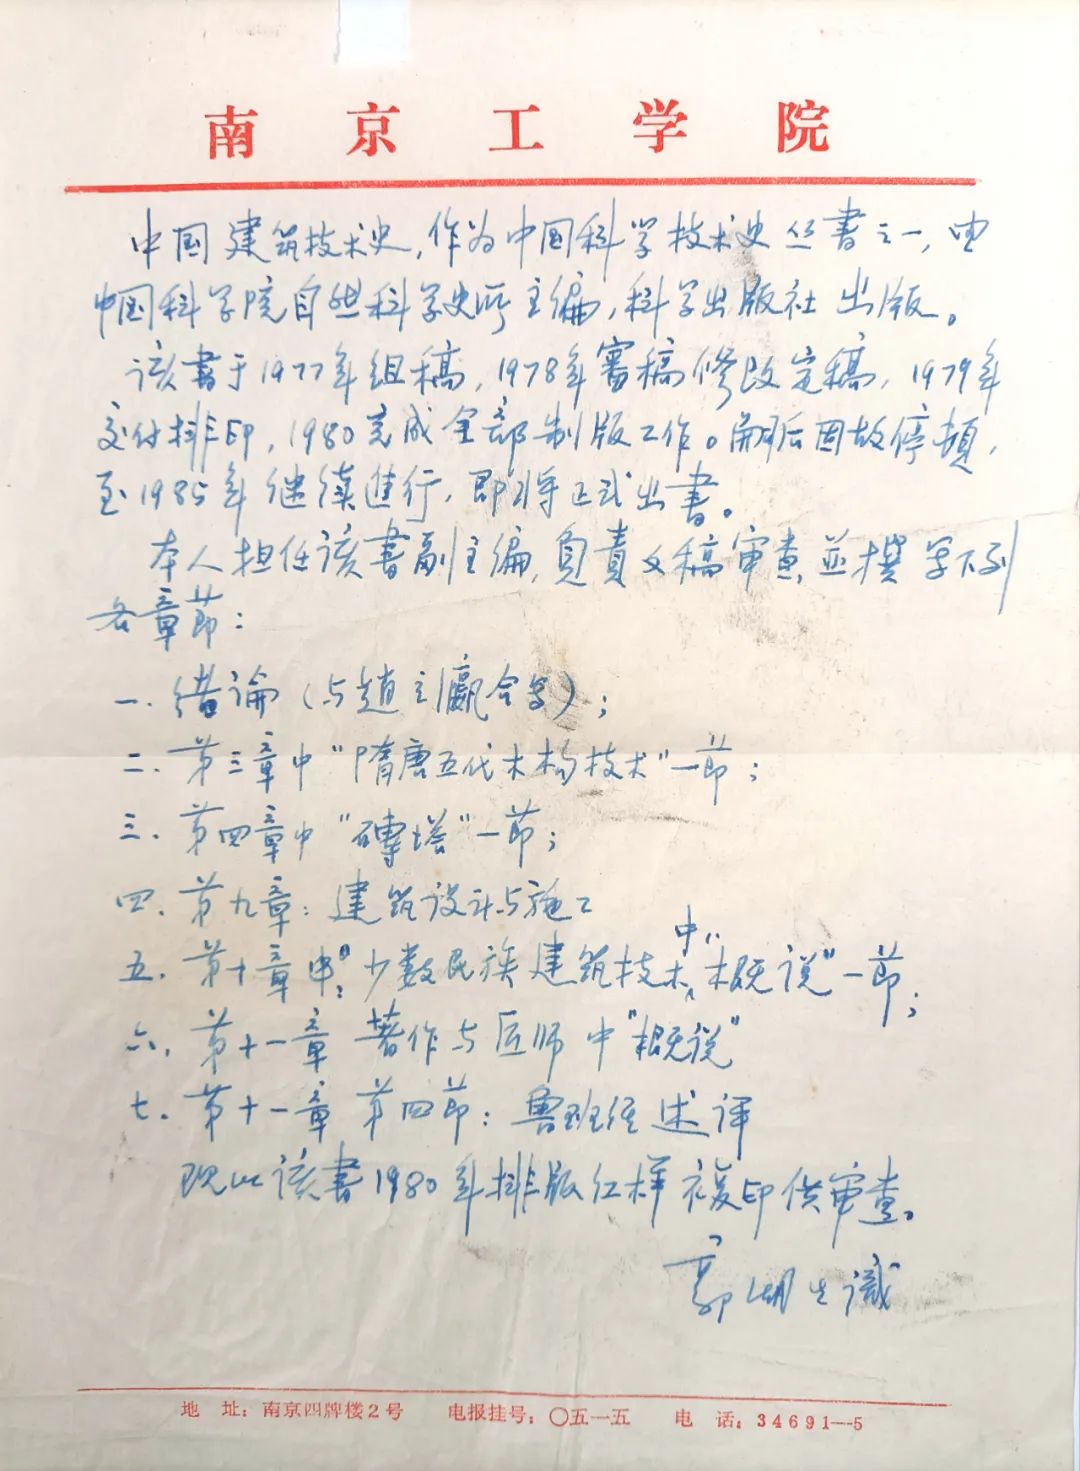 南京工学院
中国建筑技术史，作为中国科学技术史丛书之一，由
中国科学院自然科学史所主编，科学出版社出版。
该書于1977年组稿，1978年審稿修改定稿，1979年
交付排印，1980完成全部制版工作。嗣后因故停頓，
至1985年继续進行，即将正式出書。
本人担任该書副主编，負責文稿審查，並撰写下列
各章節：
一．緒論（与趙立瀛合写）；
二．第三章中"隋唐五代木构技术"一節；
三．第四章中"磚塔"一節；
四．第九章：建筑设计与施工
五．第十章：少数民族建筑技术中"概说"一節；
六．第十一章 著作与匠师中"概说"
七．第十一章 第四節：魯班经述评
现以该書1980年排版红样複印供審查。
郭湖生識
地 址：南京四牌楼2号 电报挂号：〇五一五 电 话：34691—5